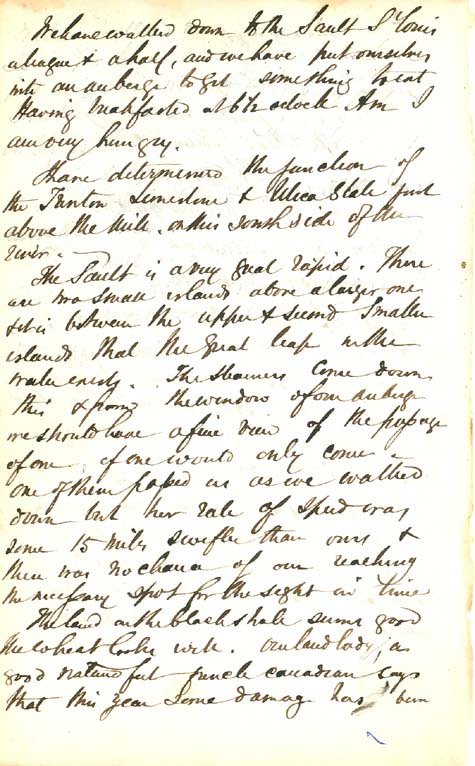 We have walked down to the Sault St Louis
a league & a half, and we have put ourselves
into an auberge to get something to eat
Having breakfasted at 6½ oclock Am I
am very hungry.
I have determined the junction of
the Trenton limestone & Utica Slate just
above the Mile. on this south side of the
river. —
The Sault is a very great rapid. There
are two small islands above a larger one
& it is between the upper & second smaller
islands that the great leap in the
water exists. The steamers come down
this & from the window of our auberge
we should have a fine view of the passage
of one, if one would only come —
one of them passed us as we walked
down but her rate of speed was
some 15 miles swifter than ours &
there was no chance of our reaching
the necessary spot for the sight in time
The land on the black shale seems good
the wheat looks well. Our landlady, a
good natured fat french canadian says
that this year some damage has been